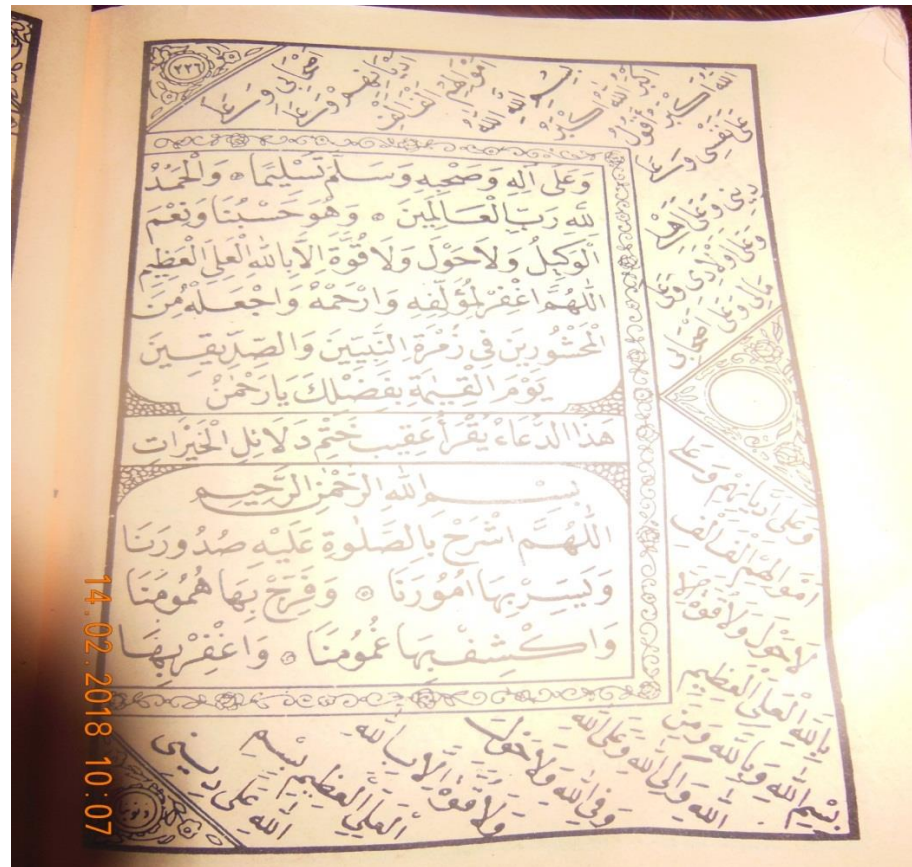 ٢٢٦
وَعَلَى اٰلِهِ وَصَحْبِهِ وَسَلَّمَ تَسْلِيمًا ۞ وَالْحَمْدُ
لِلّٰهِ رَبِّ الْعَالَمِينَ ۞ وَهُوَ حَسْبُنَا وَنِعْمَ
الْوَكِيلُ وَلَا حَوْلَ وَلَا قُوَّةَ اِلَّا بِاللّٰهِ الْعَلِيِّ الْعَظِيمِ
اَللّٰهُمَّ اغْفِرْ لِمُؤَلِّفِهِ وَارْحَمْهُ وَاجْعَلْهُ مِنَ
الْمَحْشُورِينَ فِي زُمْرَةِ النَّبِيِّينَ وَالصِّدِّيقِينَ
يَوْمَ الْقِيٰمَةِ بِفَضْلِكَ يَا رَحْمٰنُ
هَذَا الدُّعَاءُ يُقْرَأُ عَقِيبَ خَتْمِ دَلَائِلِ الْخَيْرَاتِ
بِسْمِ اللّٰهِ الرَّحْمٰنِ الرَّحِيمِ
اَللّٰهُمَّ اشْرَحْ بِالصَّلٰوةِ عَلَيْهِ صُدُورَنَا
وَيَسِّرْ بِهَا اُمُورَنَا ۞ وَفَرِّجْ بِهَا هُمُومَنَا
وَاكْشِفْ بِهَا غُمُومَنَا ۞ وَاغْفِرْ بِهَا
بِسْمِ اللّٰهِ
اللّٰهُ اَكْبَرُ
اَقُولُ
عَلَى نَفْسِي وَعَلَى
دِينِي وَعَلَى اَهْلِي
وَعَلَى اَوْلَادِي وَعَلَى
مَالِي وَعَلَى اَصْحَابِي
وَعَلَى اَدْيَانِهِمْ وَعَلَى
اَمْوَالِهِمْ اَلْفَ اَلْفِ
لَا حَوْلَ وَلَا قُوَّةَ اِلَّا
بِاللّٰهِ الْعَلِيِّ الْعَظِيمِ
بِسْمِ اللّٰهِ وَبِاللّٰهِ وَمِنَ
اللّٰهِ وَاِلَى اللّٰهِ وَعَلَى اللّٰهِ
وَفِي اللّٰهِ وَلَا حَوْلَ
وَلَا قُوَّةَ اِلَّا بِاللّٰهِ
الْعَلِيِّ الْعَظِيمِ بِسْمِ
اللّٰهِ عَلَى دِينِي
14.02.2018 10:07